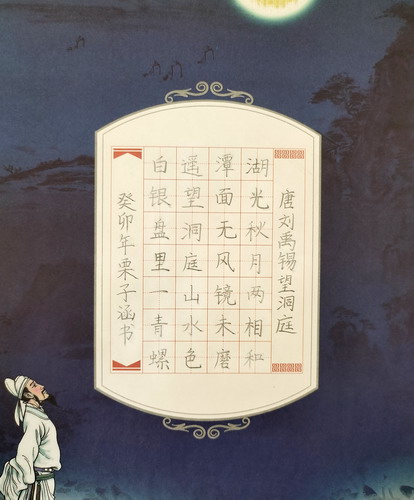 唐刘禹锡望洞庭
湖光秋月两相和
潭面无风镜未磨
遥望洞庭山水色
白银盘里一青螺
癸卯年栗子涵书